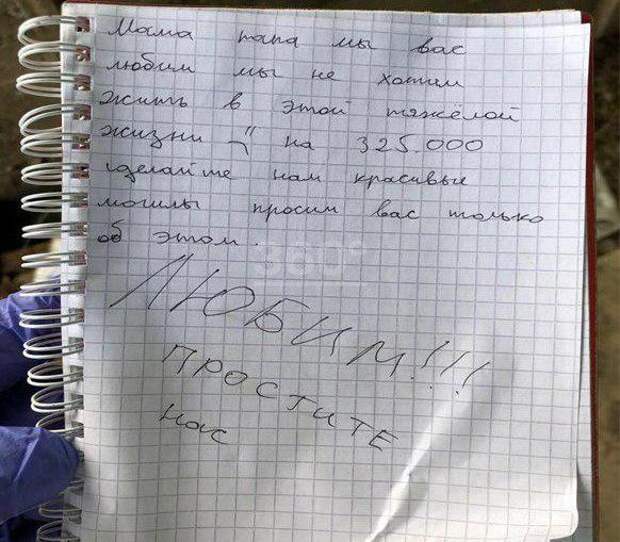 Мама папа мы вас
любим мы не хотим
жить в этой тяжёлой
жизни на 325.000
сделайте нам красивые
могилы просим вас только
об этом.
360°
ЛЮБИМ!!!
ПРОСТИТЕ
нас